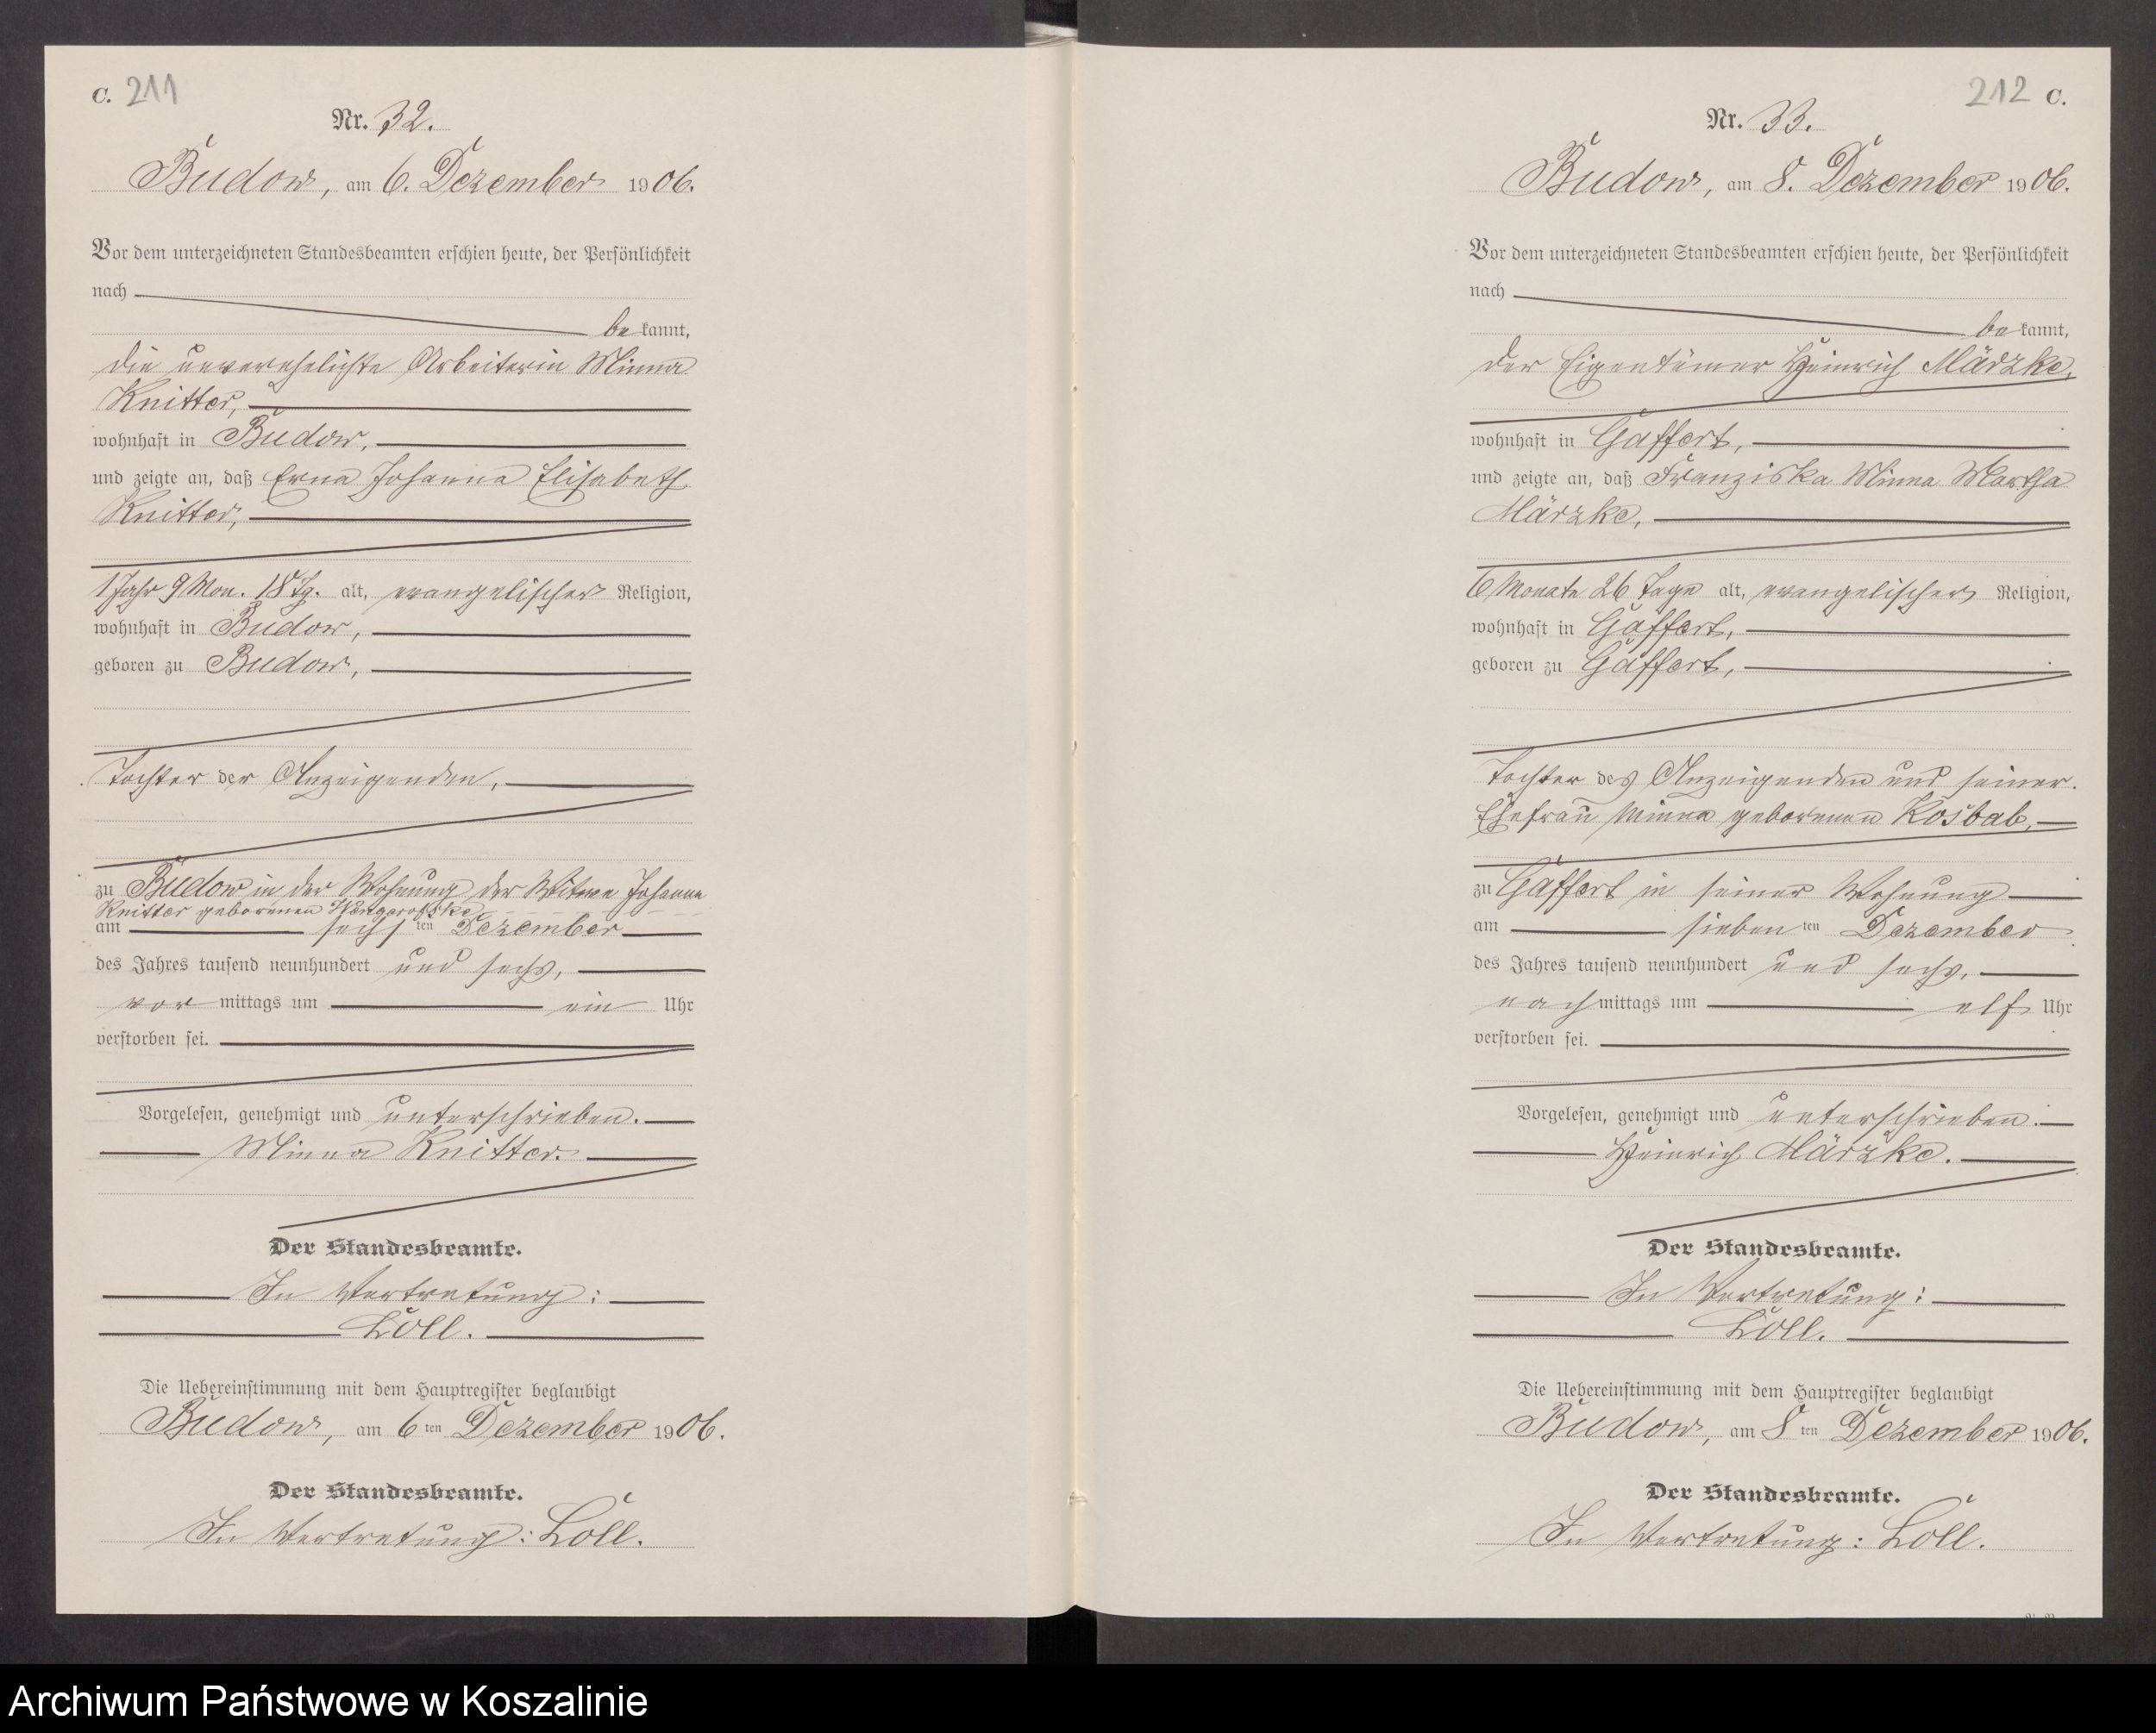 C. 211
Nr. 32.
Budow, am 6. Dezember 1906.
Vor dem unterzeichneten Standesbeamten erschien heute, der Persönlichkeit
nach
be kannt,
die unverehelichte Arbeiterin Minna
Knitter,
wohnhaft in Budow,
und zeigte an, daß Erna Johanna Elisabeth
Knitter,
1 Jahr 9 Mon. 18 Tg. alt, evangelischer Religion,
wohnhaft in Budow,
geboren zu Budow,
Tochter der Anzeigenden,
zu Budow in der Wohnung der Witwe Johanna
Knitter geborenen
am sechs ten Dezember
des Jahres tausend neunhundert und sechs,
vor mittags um ein Uhr
verstorben sei.
Vorgelesen, genehmigt und unterschrieben.
Minna Knitter.
Der Standesbeamte.
In Vertretung:
Loll.
Die Uebereinstimmung mit dem Hauptregister beglaubigt
Budow, am 6 ten Dezember 1906.
Der Standesbeamte.
In Vertretung: Loll.
212 C.
Nr. 33.
Budow, am 8. Dezember 1906.
Vor dem unterzeichneten Standesbeamten erschien heute, der Persönlichkeit
nach
be kannt,
der Eigentümer Heinrich Märzke,
wohnhaft in Gaffert,
und zeigte an, daß Franziska Minna Martha
Märzke,
6 Monate 26 Tage alt, evangelischer Religion,
wohnhaft in Gaffert,
geboren zu Gaffert,
Tochter des Anzeigenden und seiner
Ehefrau Minna geborenen Kosbab,
zu Gaffert in seiner Wohnung
am sieben ten Dezember
des Jahres tausend neunhundert und sechs,
nach mittags um elf Uhr
verstorben sei.
Vorgelesen, genehmigt und unterschrieben.
Heinrich Märzke.
Der Standesbeamte.
In Vertretung:
Loll.
Die Uebereinstimmung mit dem Hauptregister beglaubigt
Budow, am 8 ten Dezember 1906.
Der Standesbeamte.
In Vertretung: Loll.
Archiwum Państwowe w Koszalinie